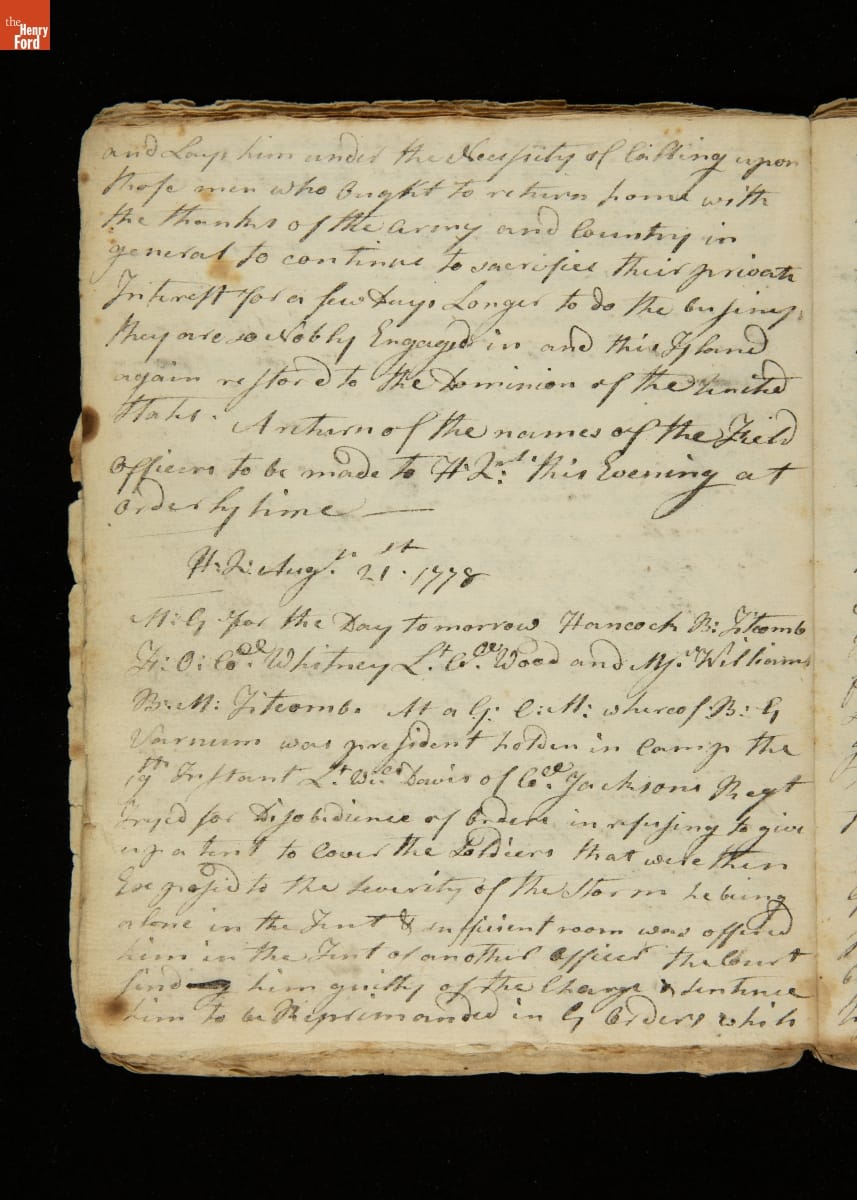 the
Henry
Ford
and Lays him under the Necessity of Calling upon
those men who ought to return home with
the thanks of the Army and Country in
general to continue to sacrifice their private
Interest for a few Days Longer to do the business
they are so Nobly Engaged in and this Island
again restord to the Dominion of the united
States. A return of the names of the Field
Officers to be made to H: Qrs: this Evening at
orderly time —
H: Q: Augt. 21st. 1778
M: G for the Day tomorrow Hancock B: Titcomb
F: O: Coll. Whitney Lt. Coll. Wood and Mjr. Williams
B: M: Titcombs At a G: C: M: whereof B: G
Varnum was president holden in Camp the
19th Instant Lt. Davis of Coll. Jacksons Regt
Tryed for Disobedience of Orders in refusing to give
up a tent to cover the Soldiers that were then
Exposed to the severity of the Storm he being
alone in the Tent & sufficient room was offered
him in the Tent of another Officer the Court
find him guilty of the Charge & sentence
him to be Reprimanded in G Orders which